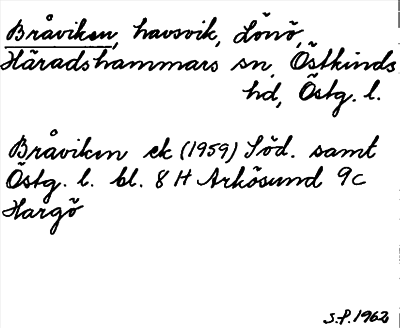 Bråviken, havsvik, Lönö,
Häradshammars sn, Östkinds
hd, Östg. l.
Bråviken ek (1959) Söd. samt
Östg. l. bl. 8 H Arkösund 9c
Hargö
S.P. 1962